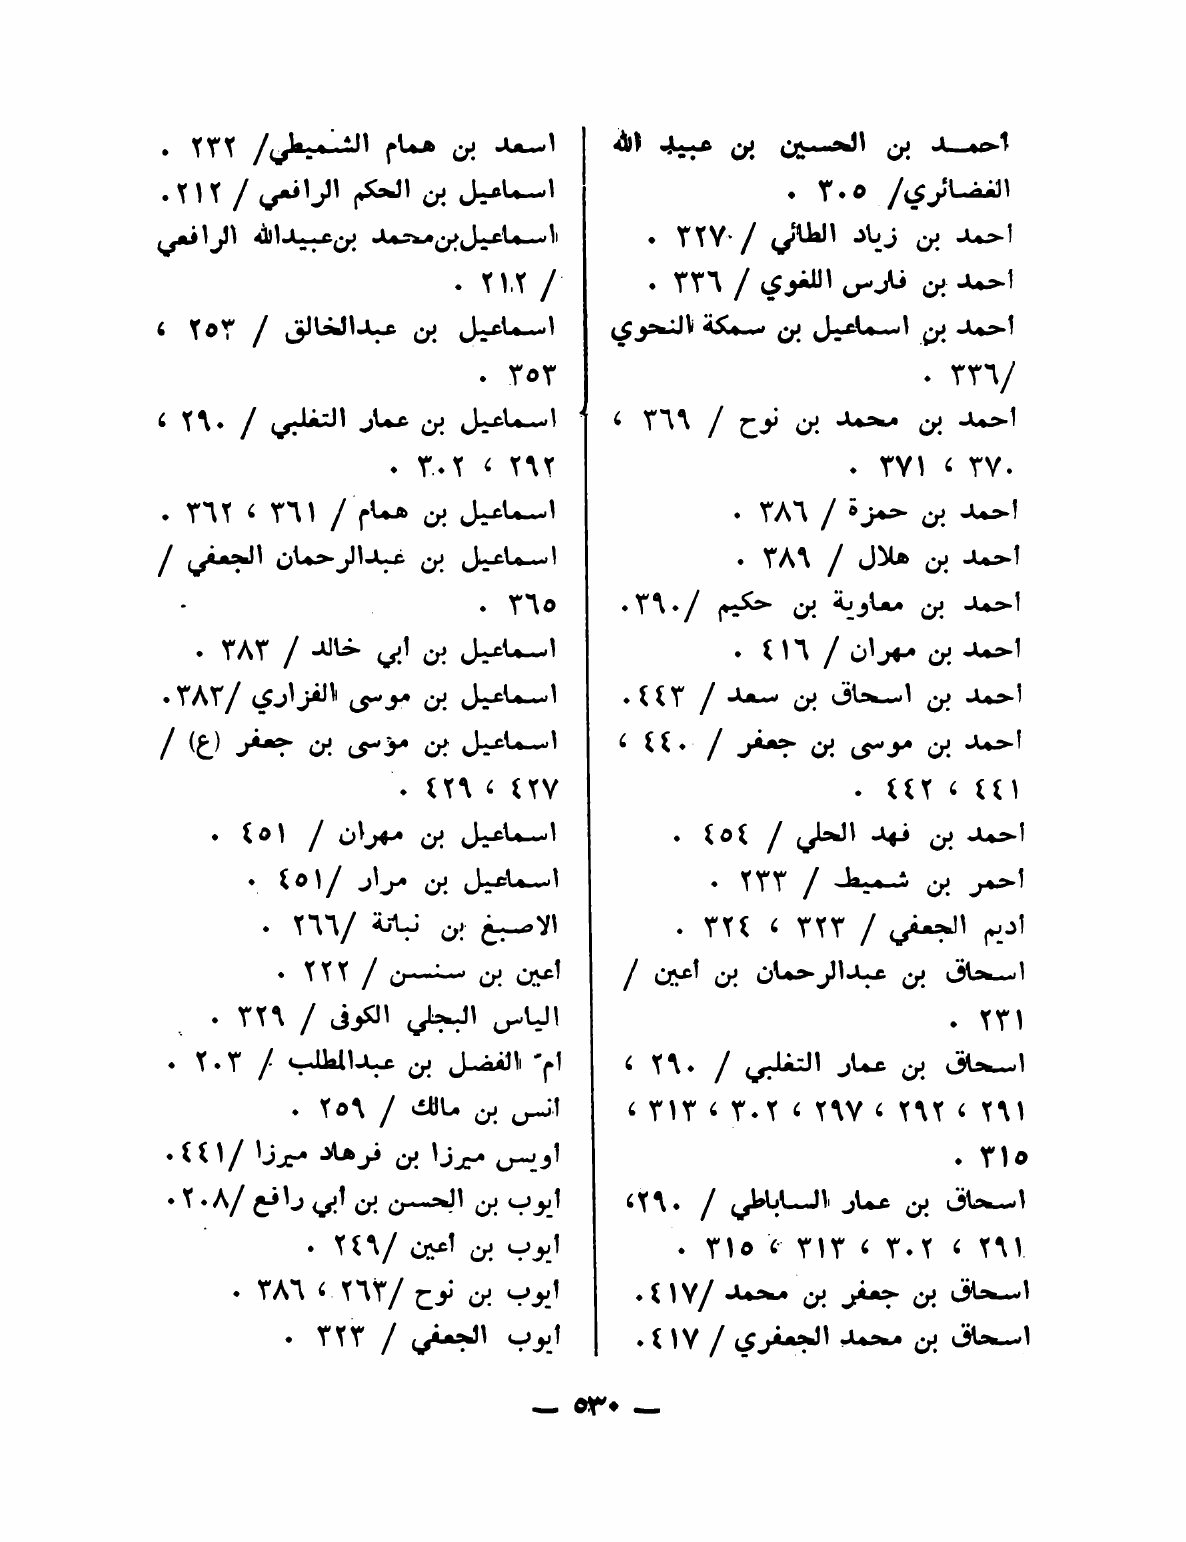 أحمد بن الحسين بن عبيد الله
الغضائري/ ٣٠٥ .
أحمد بن زياد الطائي / ٣٢٧ .
أحمد بن فارس اللغوي / ٣٣٦ .
أحمد بن اسماعيل بن سمكة النحوي
/٣٣٦ .
أحمد بن محمد بن نوح / ٣٦٩ ،
٣٧٠ ، ٣٧١ .
أحمد بن حمزة / ٣٨٦ .
أحمد بن هلال / ٣٨٩ .
أحمد بن معاوية بن حكيم /٣٩٠.
أحمد بن مهران / ٤١٦ .
أحمد بن اسحاق بن سعد / ٤٤٣.
أحمد بن موسى بن جعفر / ٤٤٠ ،
٤٤١ ، ٤٤٢ .
أحمد بن فهد الحلي / ٤٥٤ .
أحمر بن شميط / ٢٣٣ .
أديم الجعفي / ٣٢٣ ، ٣٢٤ .
اسحاق بن عبدالرحمان بن أعين /
٢٣١ .
اسحاق بن عمار التغلبي / ٢٩٠ ،
٢٩١ ، ٢٩٢ ، ٢٩٧ ، ٣٠٢ ، ٣١٣ ،
٣١٥ .
اسحاق بن عمار الساباطي / ٢٩٠،
٢٩١ ، ٣٠٢ ، ٣١٣ ، ٣١٥ .
اسحاق بن جعفر بن محمد /٤١٧.
اسحاق بن محمد الجعفري /٤١٧.
اسعد بن همام الشميطي/ ٢٣٢ .
اسماعيل بن الحكم الرافعي / ٢١٢.
اسماعيل بن محمد بن عبيدالله الرافعي
/ ٢١٢ .
اسماعيل بن عبدالخالق / ٢٥٣ ،
٣٥٣ .
اسماعيل بن عمار التغلبي / ٢٩٠ ،
٢٩٢ ، ٣٠٢ .
اسماعيل بن همام / ٣٦١ ، ٣٦٢ .
اسماعيل بن عبدالرحمان الجعفي /
٣٦٥ .
اسماعيل بن أبي خالد / ٣٨٣ .
اسماعيل بن موسى الفزاري /٣٨٣.
اسماعيل بن موسى بن جعفر (ع) /
٤٢٧ ، ٤٢٩ .
اسماعيل بن مهران / ٤٥١ .
اسماعيل بن مرار /٤٥١ .
الاصبغ بن نباتة /٢٦٦ .
أعين بن سنسن / ٢٢٢ .
الياس البجلي الكوفى / ٣٢٩ .
أم الفضل بن عبدالمطلب / ٢٠٣ .
أنس بن مالك / ٢٥٩ .
أويس ميرزا بن فرهاد ميرزا /٤٤١.
أيوب بن الحسن بن أبي رافع /٢٠٨.
أيوب بن أعين /٢٤٩ .
أيوب بن نوح /٢٦٣ ، ٣٨٦ .
أيوب الجعفي / ٣٢٣ .
— ٥٣٠ —